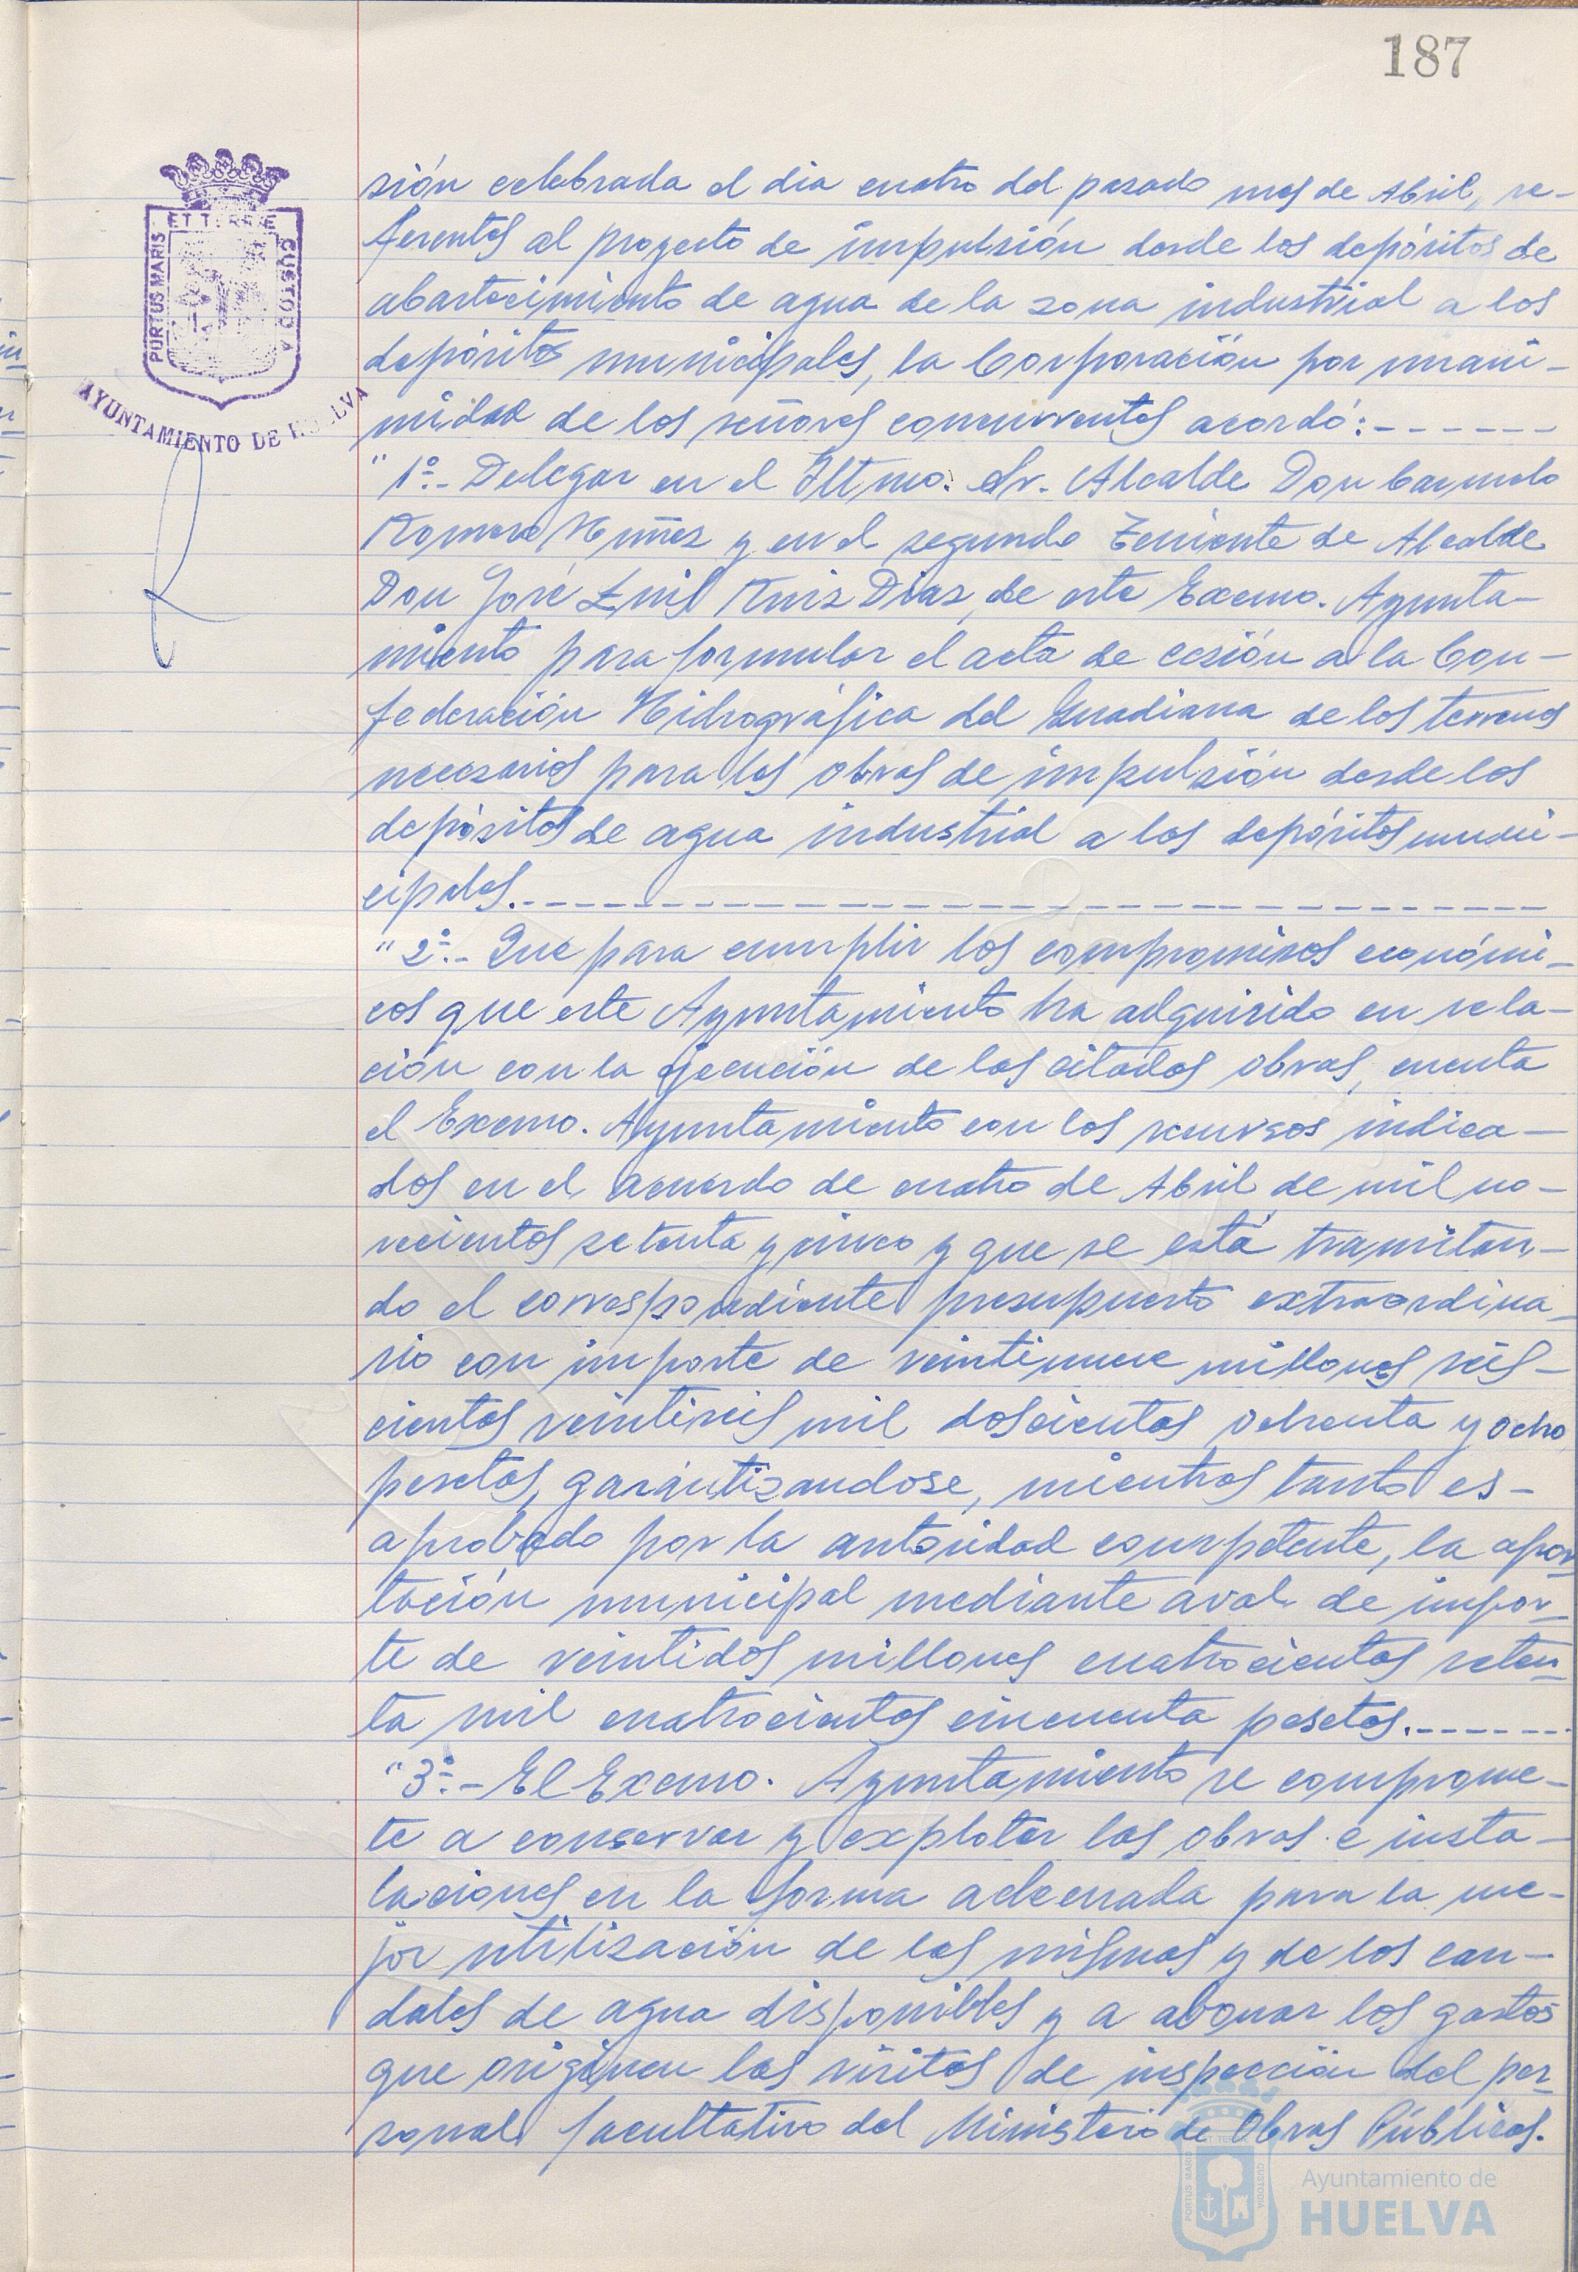 187
PORTUS MARIS
ET TERRE
CUSTODIA
AYUNTAMIENTO DE HUELVA
sión celebrada el dia cuatro del pasado mes de Abril, re-
ferentes al proyecto de impulsión desde los depósitos de
abastecimiento de agua de la zona industrial a los
depósitos municipales, la Corporación por unani-
midad de los señores concurrentes acordó:------
"1º.- Delegar en el Iltmo. Sr. Alcalde Don Carmelo
Romero Nuñez y en el segundo Teniente de Alcalde
Don José Luis Ruiz Diaz, de este Excmo. Ayunta-
miento para formular el acta de cesión a la Con-
federación Hidrográfica del Guadiana de los terrenos
necesarios para las obras de impulsión desde los
depósitos de agua industrial a los depósitos muni-
cipales.------------------------------
"2º.- Que para cumplir los compromisos económi-
cos que este Ayuntamiento ha adquirido en rela-
ción con la ejecución de las citadas obras, cuenta
el Excmo. Ayuntamiento con los recursos indica-
dos en el acuerdo de cuatro de Abril de mil no-
vecientos setenta y cinco y que se está tramitan-
do el correspondiente presupuesto extraordina-
rio con importe de veintinueve millones seis-
cientas veintiseis mil doscientas ochenta y ocho
pesetas, garantizandose, mientras tanto es-
aprobado por la autoridad competente, la apor-
tación municipal mediante aval de impor-
te de veintidos millones cuatrocientas seten-
ta mil cuatrocientas cincuenta pesetas.------
"3º.- El Excmo. Ayuntamiento se comprome-
te a conservar y explotar las obras e insta-
laciones en la forma adecuada para la me-
jor utilización de las mismas y de los cau-
dales de agua disponibles y a abonar los gastos
que originen las visitas de inspección del per-
sonal facultativo del Ministerio de Obras Públicas.
PORTUS MARIS
ET TERRE
CUSTODIA
Ayuntamiento de
HUELVA